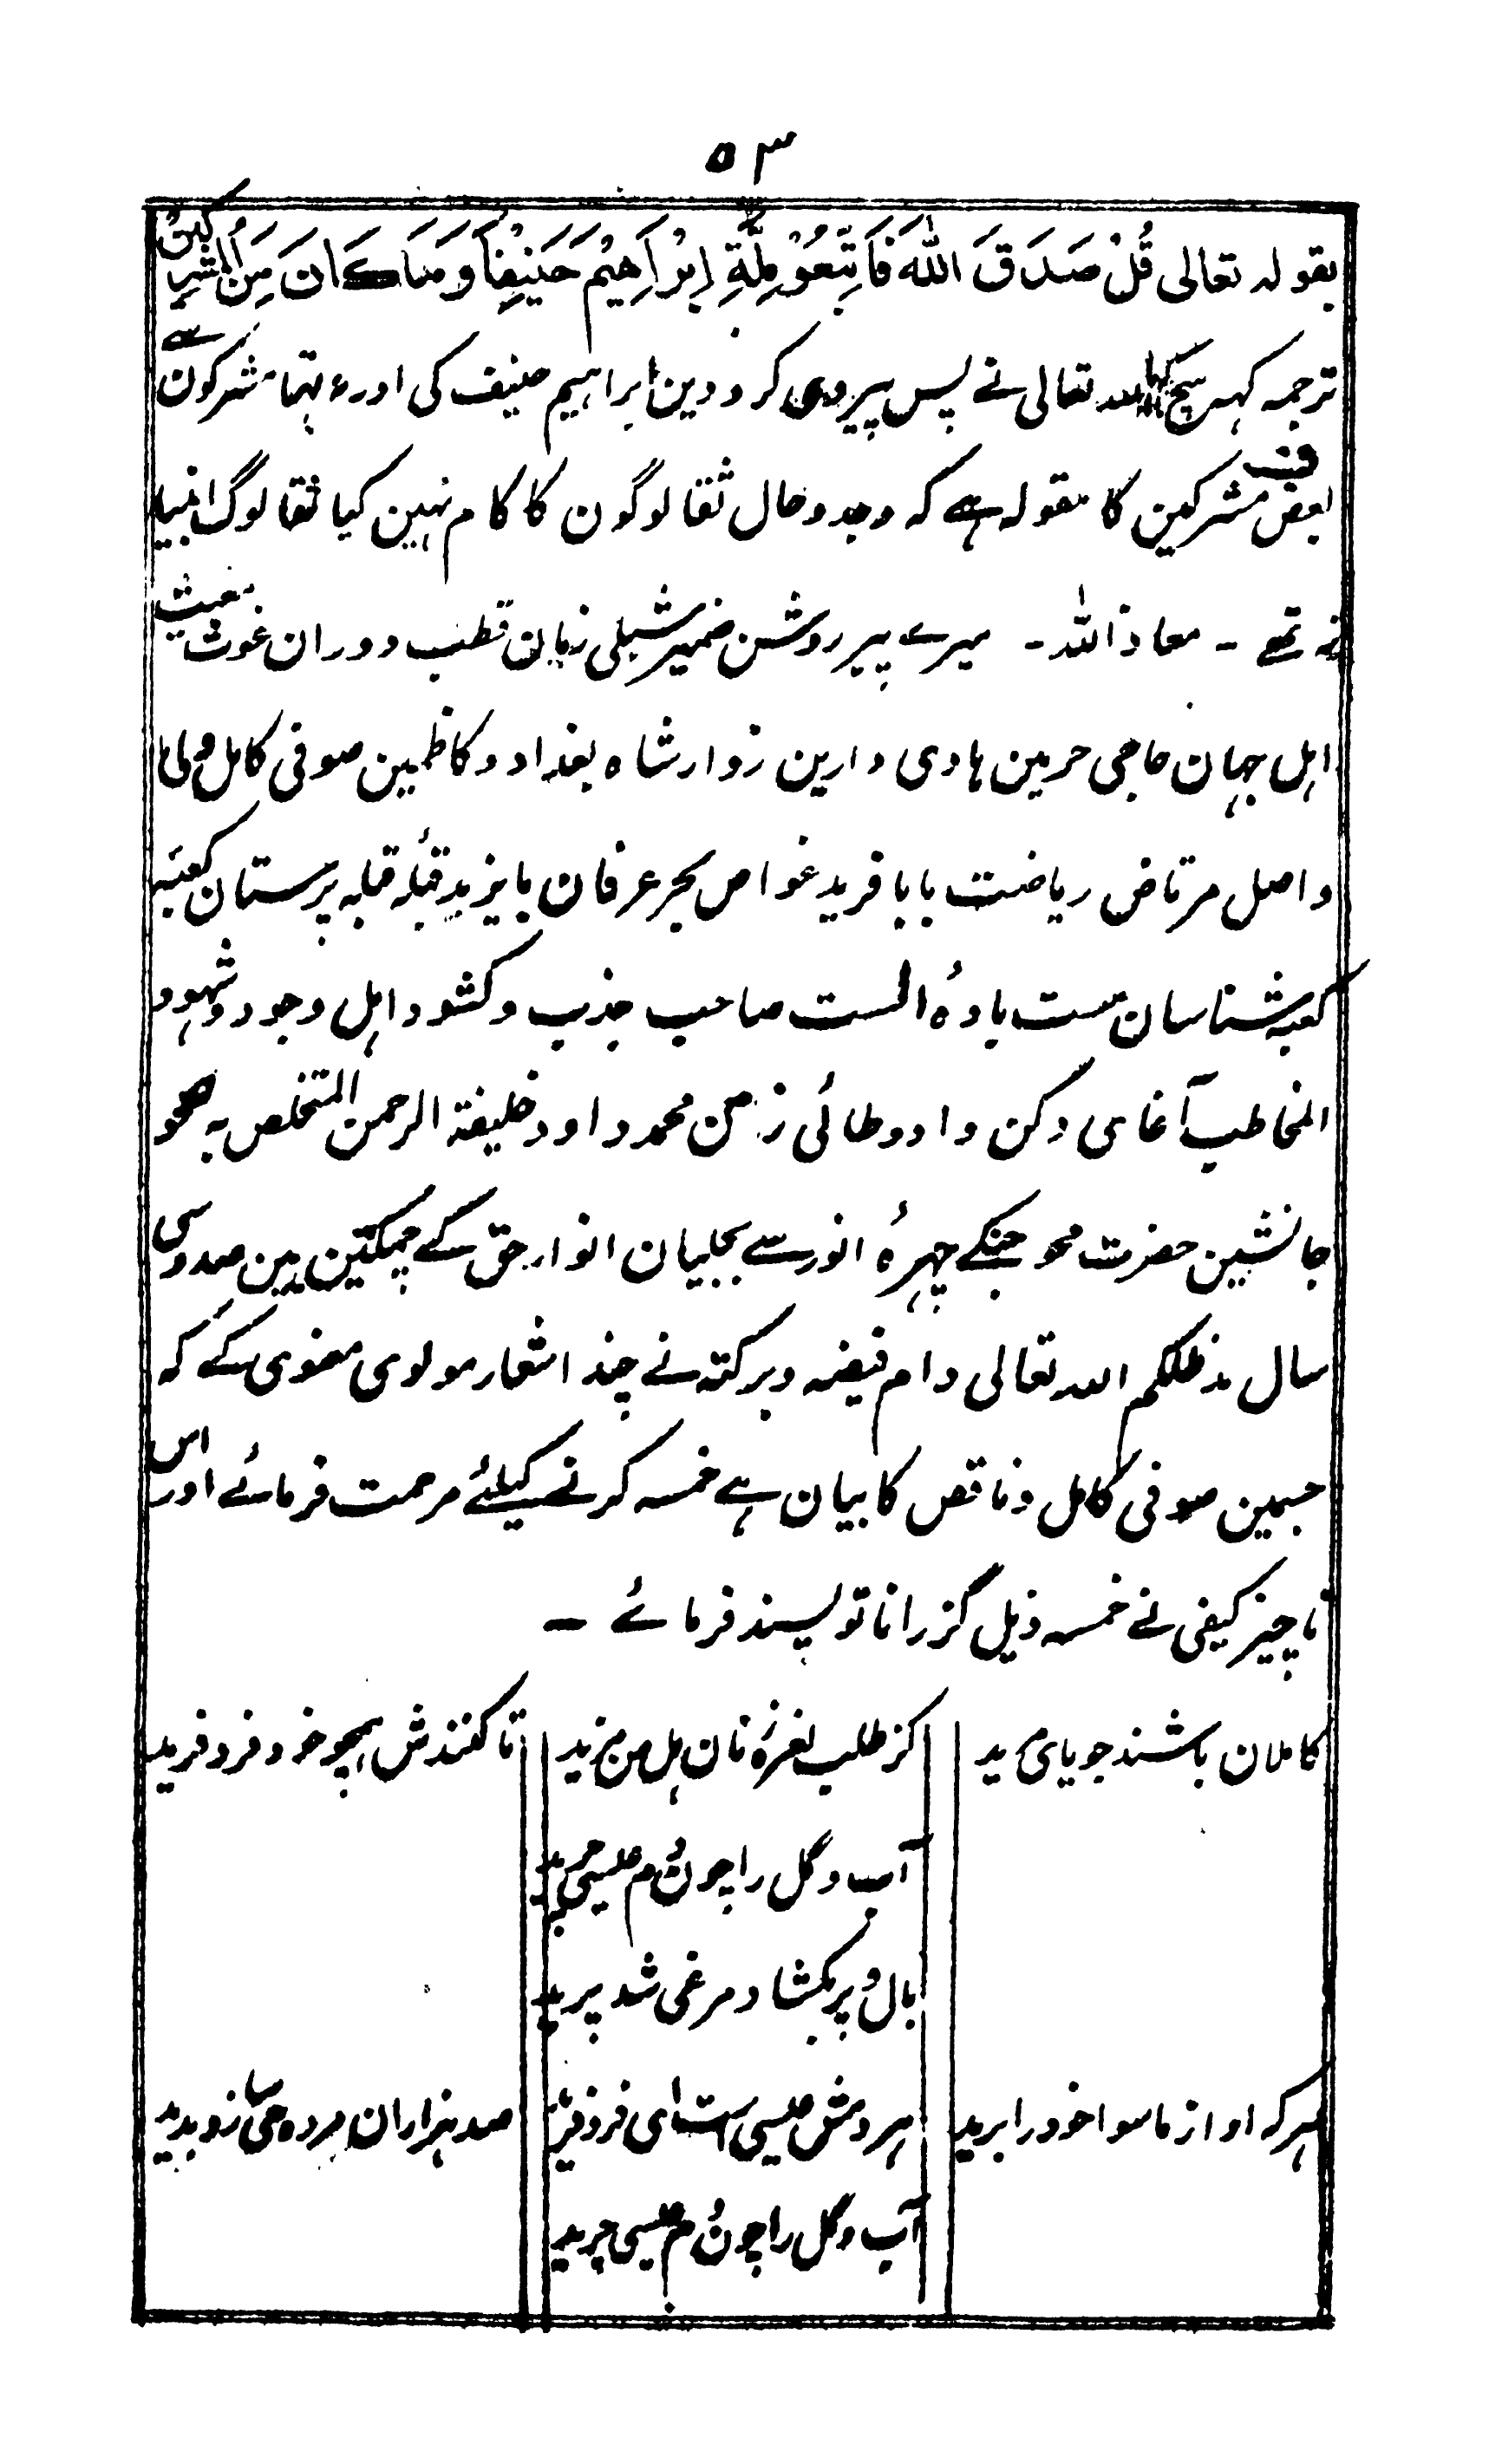 ۵۳
بقولہ تعالی قُلْ صَدَقَ اللّٰهَ فَاتَّبِعُوْ مِلَّةِ اِبْرَاهِیْمَ حَنِیْفًا وَمَا كَانَ مِنَ الْمُشْرِكِیْنَ
ترجمہ کہہ سچ کہا اللہ تعالی نے پس پیروی کرو دین ابراہیم حنیف کی اور نہ تھا مشرکون سے
ف
بعض مشرکین کا مقولہ ہے کہ وجد و حال ثقا لوگون کا کام نہین کیا ثقا لوگ انبیا
نہ تھے ـ معاذ اللہ ـ میرے پیر روشن ضمیر شبلی زمان قطب دوران غوث مغیث
اہل جہان حاجی حرمین ہادی دارین زوار شاہ بغداد و کاظمین صوفی کامل ولی
واصل مرتاض ریاضت بابا فرید غواص بحر عرفان بایزید قبلۂ قبلہ پرستان کعبۂ
کعبہ شناسان مست بادۂ الست صاحب جذب و کشود اہل وجود و شہود
المخاطب آغای دکن داود طائی زمن محمد داود خلیفۃ الرحمن المتخلص بہ صحو
جانشین حضرت محو جنکے چہرۂ انور سے بجلیان انوار حق کے چمکتین ہین صد و سی
سال مد ظلکم اللہ تعالی دام فیضہ و برکتہ نے چند اشعار مولوی معنوی کے کہ
جسمین صوفی کامل و ناقص کا بیان ہے خمسہ کرنے کیلئے مرحمت فرمائے اور اس
ناچیز کیفی نے خمسہ ذیل گزرانا تو پسند فرمائے ـ
کاملان باشند جویای مرید کز طلب نعرۂ زنان ہل من مزید تا کنندش ہمچو خود فرد فرید
آب و گل را چون دم عیسی چرید
بال و پر بکشاد مرغی شد پرید
ہر کہ او از ماسوا خود را برید ہر دمش عیسی ست ای فرد فرید صد ہزاران مردہ حی سازد بدید
آب و گل را چون دم عیسی چرید